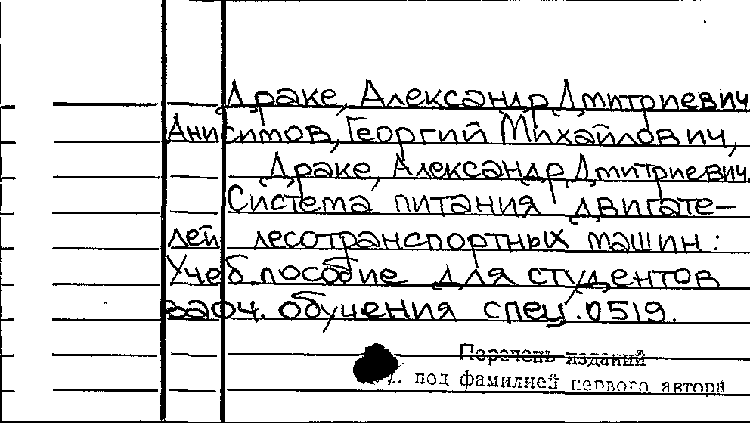 Драке, Александр Дмитриевич
Анисимов, Георгий Михайлович,
Драке, Александр Дмитриевич.
Система питания двигате-
лей лесотранспортных машин:
Учеб. пособие для студентов
заоч. обучения спец. 0519.
Перечень изданий
под фамилией первого автора